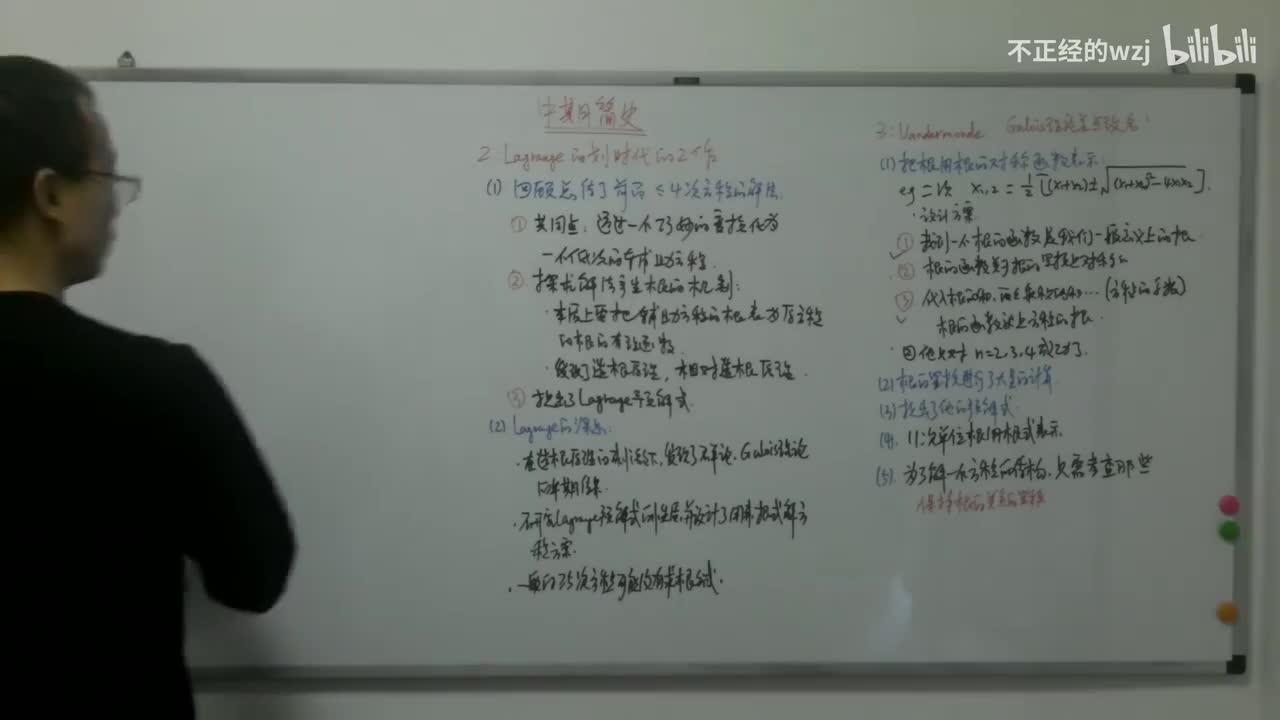 不正经的wzj bilibili
中期简史
2. Lagrange的划时代的工作
(1) 回顾总结了前面≤4次方程的解法
① 共同点：通过一个巧妙的变换化为
一个低次的辅助方程.
② 探求解法产生根的机制:
·本质上要把辅助方程的根表为原方程
的根的有理函数
·发现了逆根原理，相对逆根原理.
③ 提出了Lagrange预解式
(2) Lagrange的
·在 根原理的 下，发现了群论、Galois理论
的早期结果.
·不可 Lagrange预解式的 并设计了用 根式解方
程方案.
·一般的≥5次方程可能没有求根公式.
3: Vandermonde Galois
(1) 把根用根的对称函数表示
eg 二次 x₁,₂ = 1/2 [(x₁+x₂)±√(x₁+x₂)²-4x₁x₂].
·设计方案
① 找到一个根的函数是我们一般意义上的根
② 根的函数关于根的置换是对称的
③ 代入根的和, ···(方程的系数)
根的函数 方程的根.
·因他只对 n=2,3,4成功了.
(2) 根的置换进行了大量的计算
(3) 提出了他的预解式
(4). 11次单位根用根式表示.
(5). 为了解一个方程的结构, 只需考查那些
保持根的关系的置换